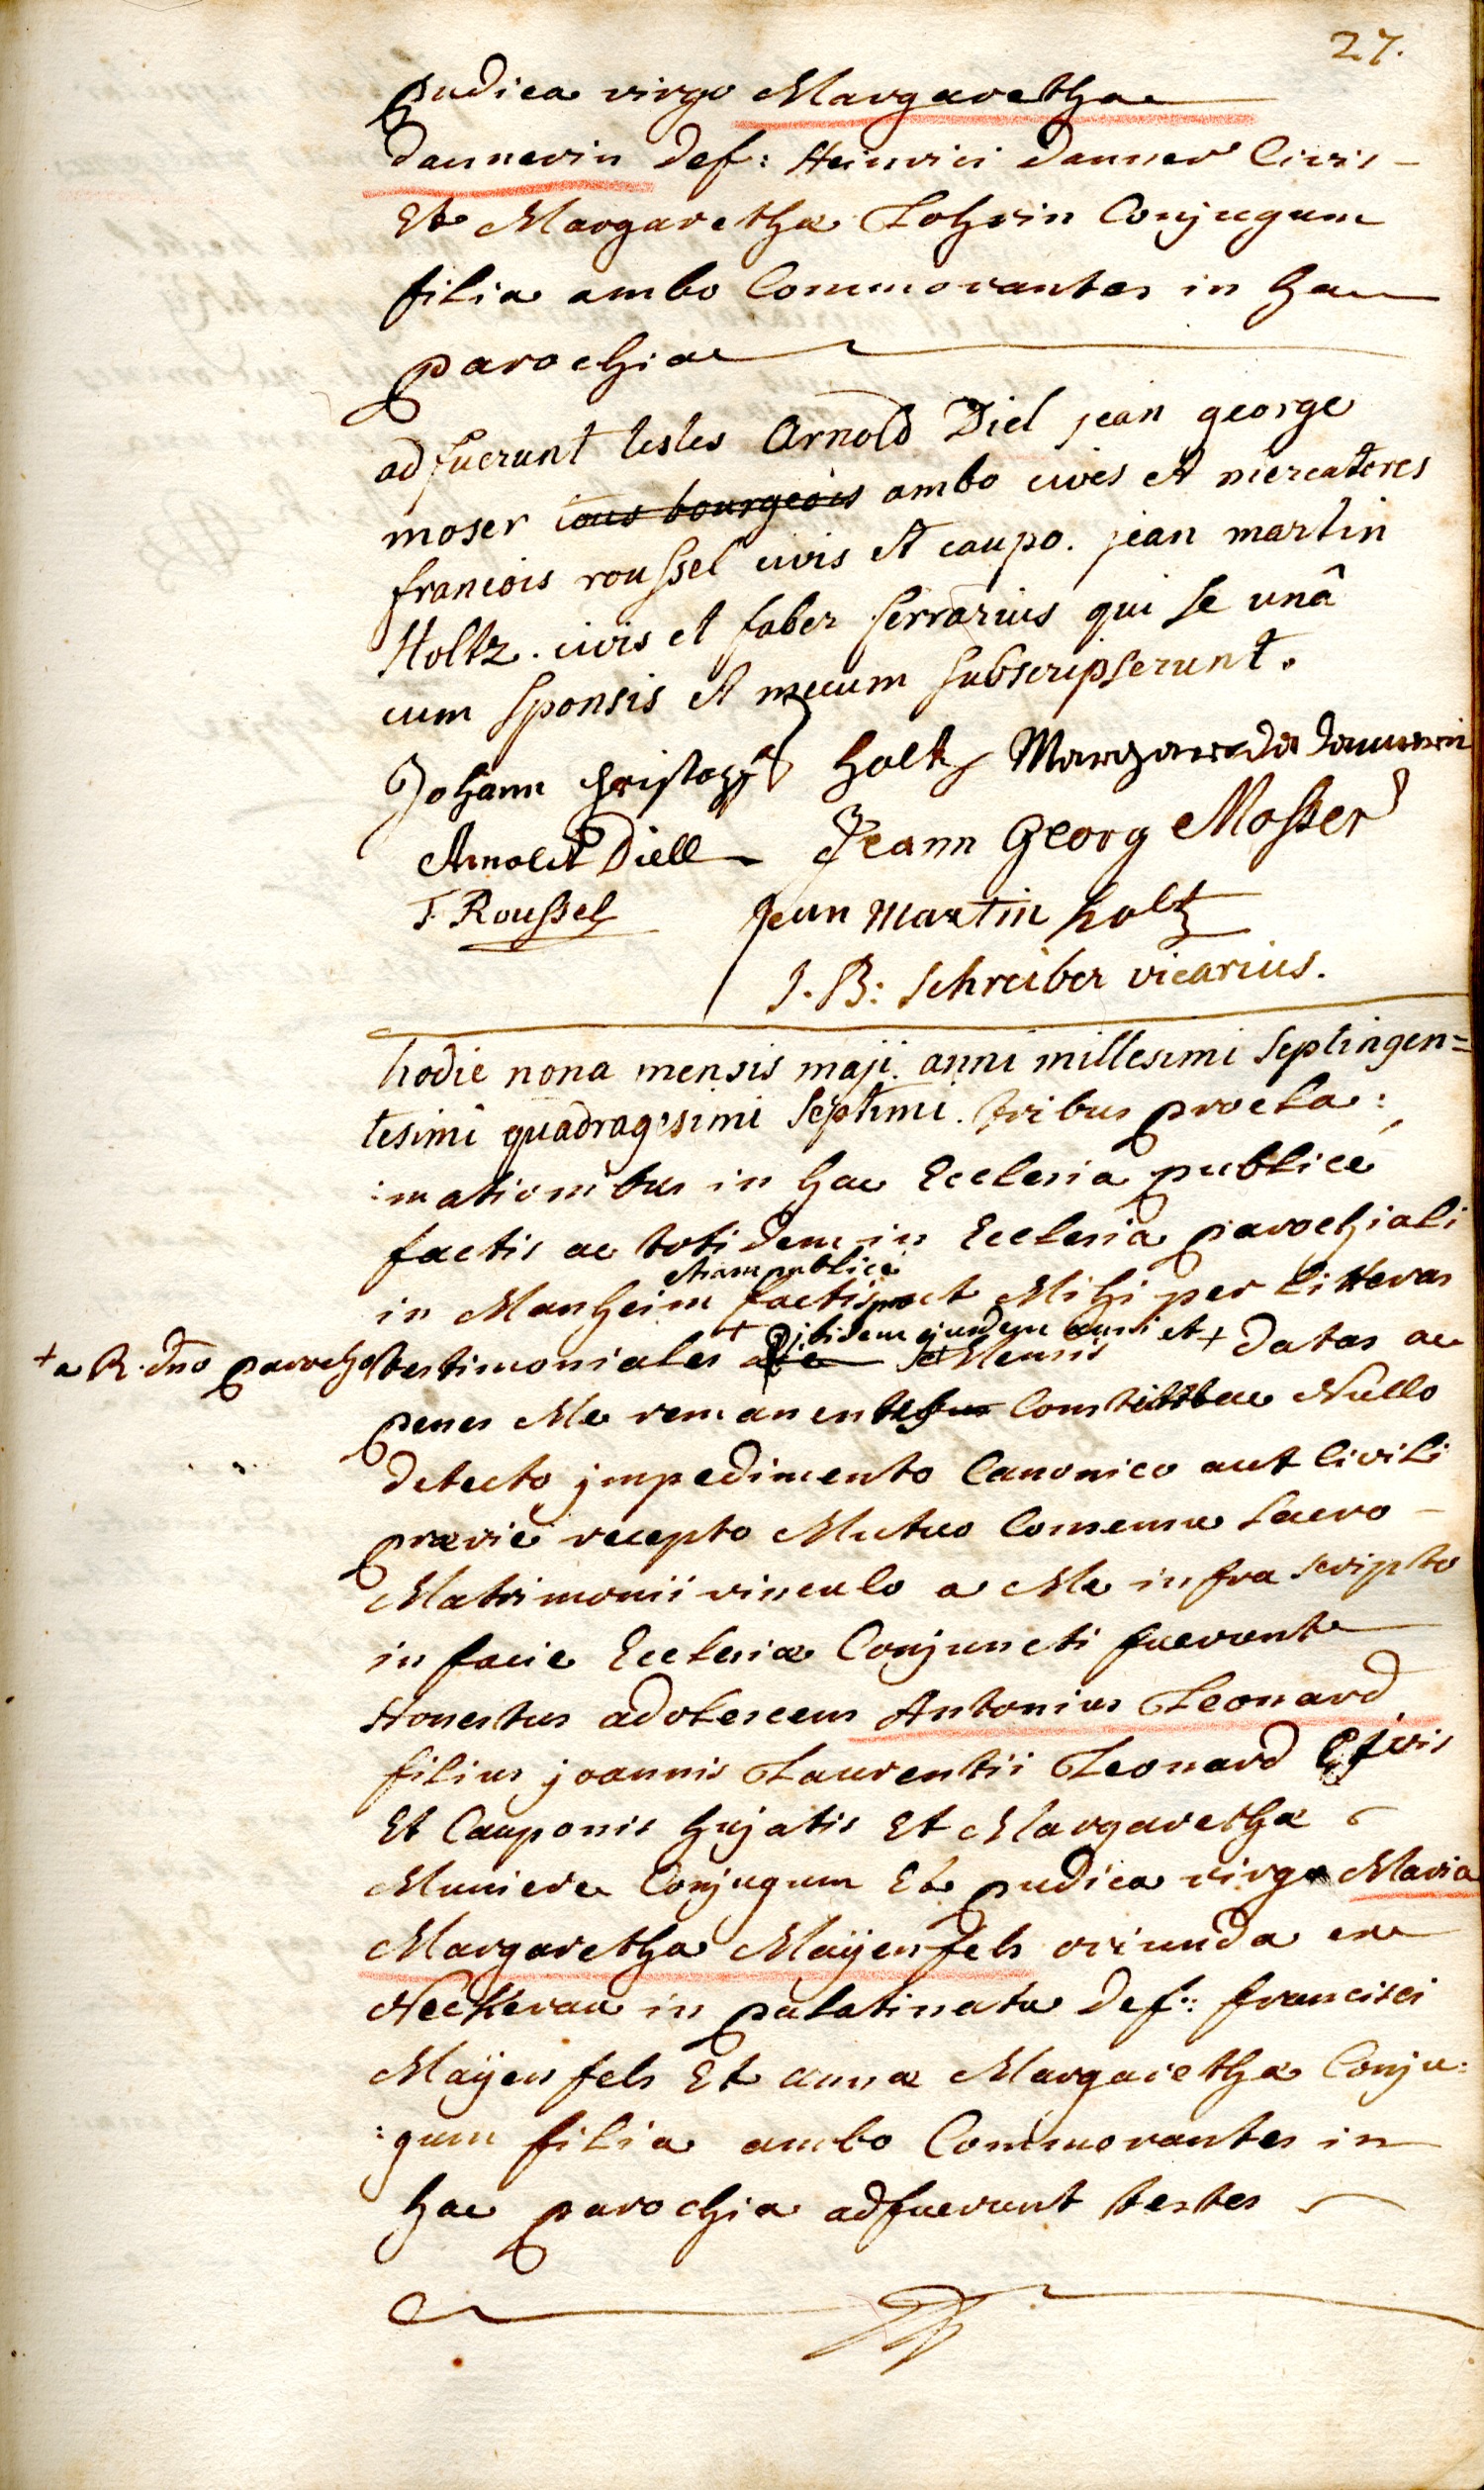 27.
pudica virgo Margaretha
Dannerin def: Heinrici Danner Civis
Et Margaretha Lohrin Conjugum
filia ambo Commorantes in hac
parochia
adfuerunt testes Arnold Diel jean george
moser tous bourgeois ambo cives et mercatores
francois roussel civis et caupo. jean martin
Holtz. civis et faber ferrarius qui se unâ
cum sponsis et mecum subscripserunt.
Johann Christoph Holtz Margareda Dannerin
Arnolt Diell Jeann Georg Mosser
F. Roussel jean martin holtz
J. B: schreiber vicarius.
hodie nona mensis maji. anni millesimi septingen=
tesimi quadragesimi septimi. tribus procla:
:mationibus in hac Ecclesia publicé
factis ac totidem in Ecclesia parochiali
etiam publicé
in Manheim factis ut Mihi per litteras
ibidem ejusdem anni et +
+ a R. dno parocho testimoniales Mensis datas ac
penes Me remanentes Nullo
detecto impedimento Canonico aut Civili
prævié recepto Mutuo Consensu sacro
Matrimonii vinculo a Me infra scripto
in facie Ecclesiæ Conjuncti fuerunt
Honestus adolescens Antonius Leonard
filius joannis Laurentii Leonard Civis
Et Cauponis hujatis Et Margarethæ
Muniere Conjugum Et pudica virgo Maria
Margaretha Maÿenfels oriunda ex
Neckerau in palatinatu def: francisci
Maÿenfels Et annæ Margarethæ Conju:
:gum filia ambo Commorantes in
hac parochia adfuerunt testes